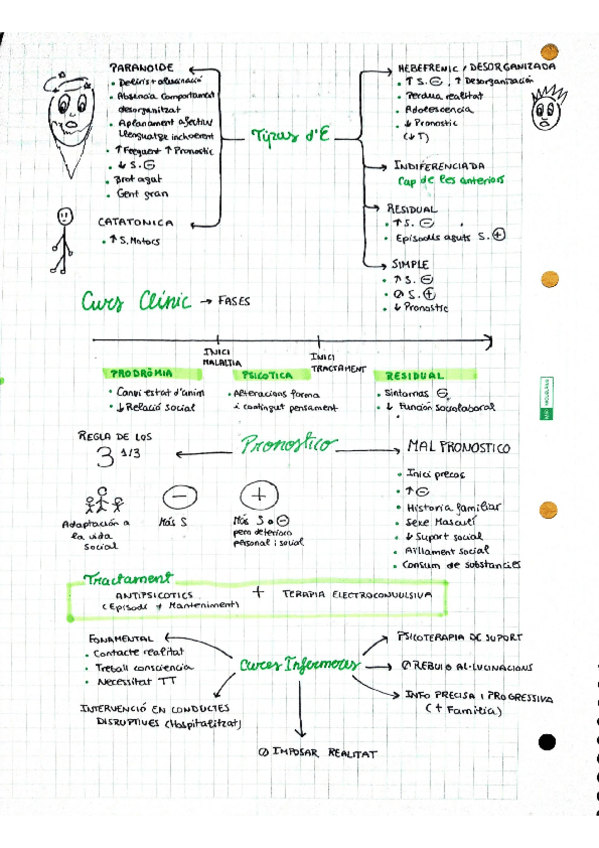 PARANOIDE
• Deliris + alucinació
• Absència comportament
desorganitzat
• Aplanament afectiu
Llenguatge incoherent
• ↑ Freqüent ↑ Pronostic
• ↓ S. ⊖
• Brot agut
• Gent gran
CATATONICA
• ↑ S. Motors
Tipus d'E
HEBEFRENIC / DESORGANIZADA
• ↑ S. ⊖, ↑ Desorganización
• Perdua realitat
• Adolescencia
• ↓ Pronostic
(↓T)
INDIFERENCIADA
Cap de les anteriors
RESIDUAL
• ↑ S. ⊖
• Episodis aguts S. ⊕
SIMPLE
• ↑ S. ⊖
• ∅ S. ⊕
• ↓ Pronostic
Curs Clínic → FASES
INICI
MALALTIA
INICI
TRACTAMENT
PRODRÒMIA
• Canvi estat d'anim
• ↓ Relació social
PSICOTICA
• Alteracions forma
i contingut pensament
RESIDUAL
• Sintomas ⊖
• ↓ Función sociolaboral
Pronostico
REGLA DE LOS
3 1/3
Adaptación a
la vida
social
−
Más S
+
Más S o ⊖
pero deterioro
personal i social
MAL PRONOSTICO
• Inici precoç
• ↑ ⊖
• Historia familiar
• Sexe Masculí
• ↓ Suport social
• Aïllament social
• Consum de substancies
Tractament
ANTIPSICOTICS
(Episodi + Manteniment)
+
TERAPIA ELECTROCONVULSIVA
Cures Infermeres
FONAMENTAL
• Contacte realitat
• Treball consciencia
• Necessitat TT
INTERVENCIÓ EN CONDUCTES
DISRUPTIVES (Hospitalitzat)
∅ IMPOSAR REALITAT
PSICOTERAPIA DE SUPORT
∅ REBUIG AL·LUCINACIONS
INFO PRECISA I PROGRESSIVA
(+ Familia)